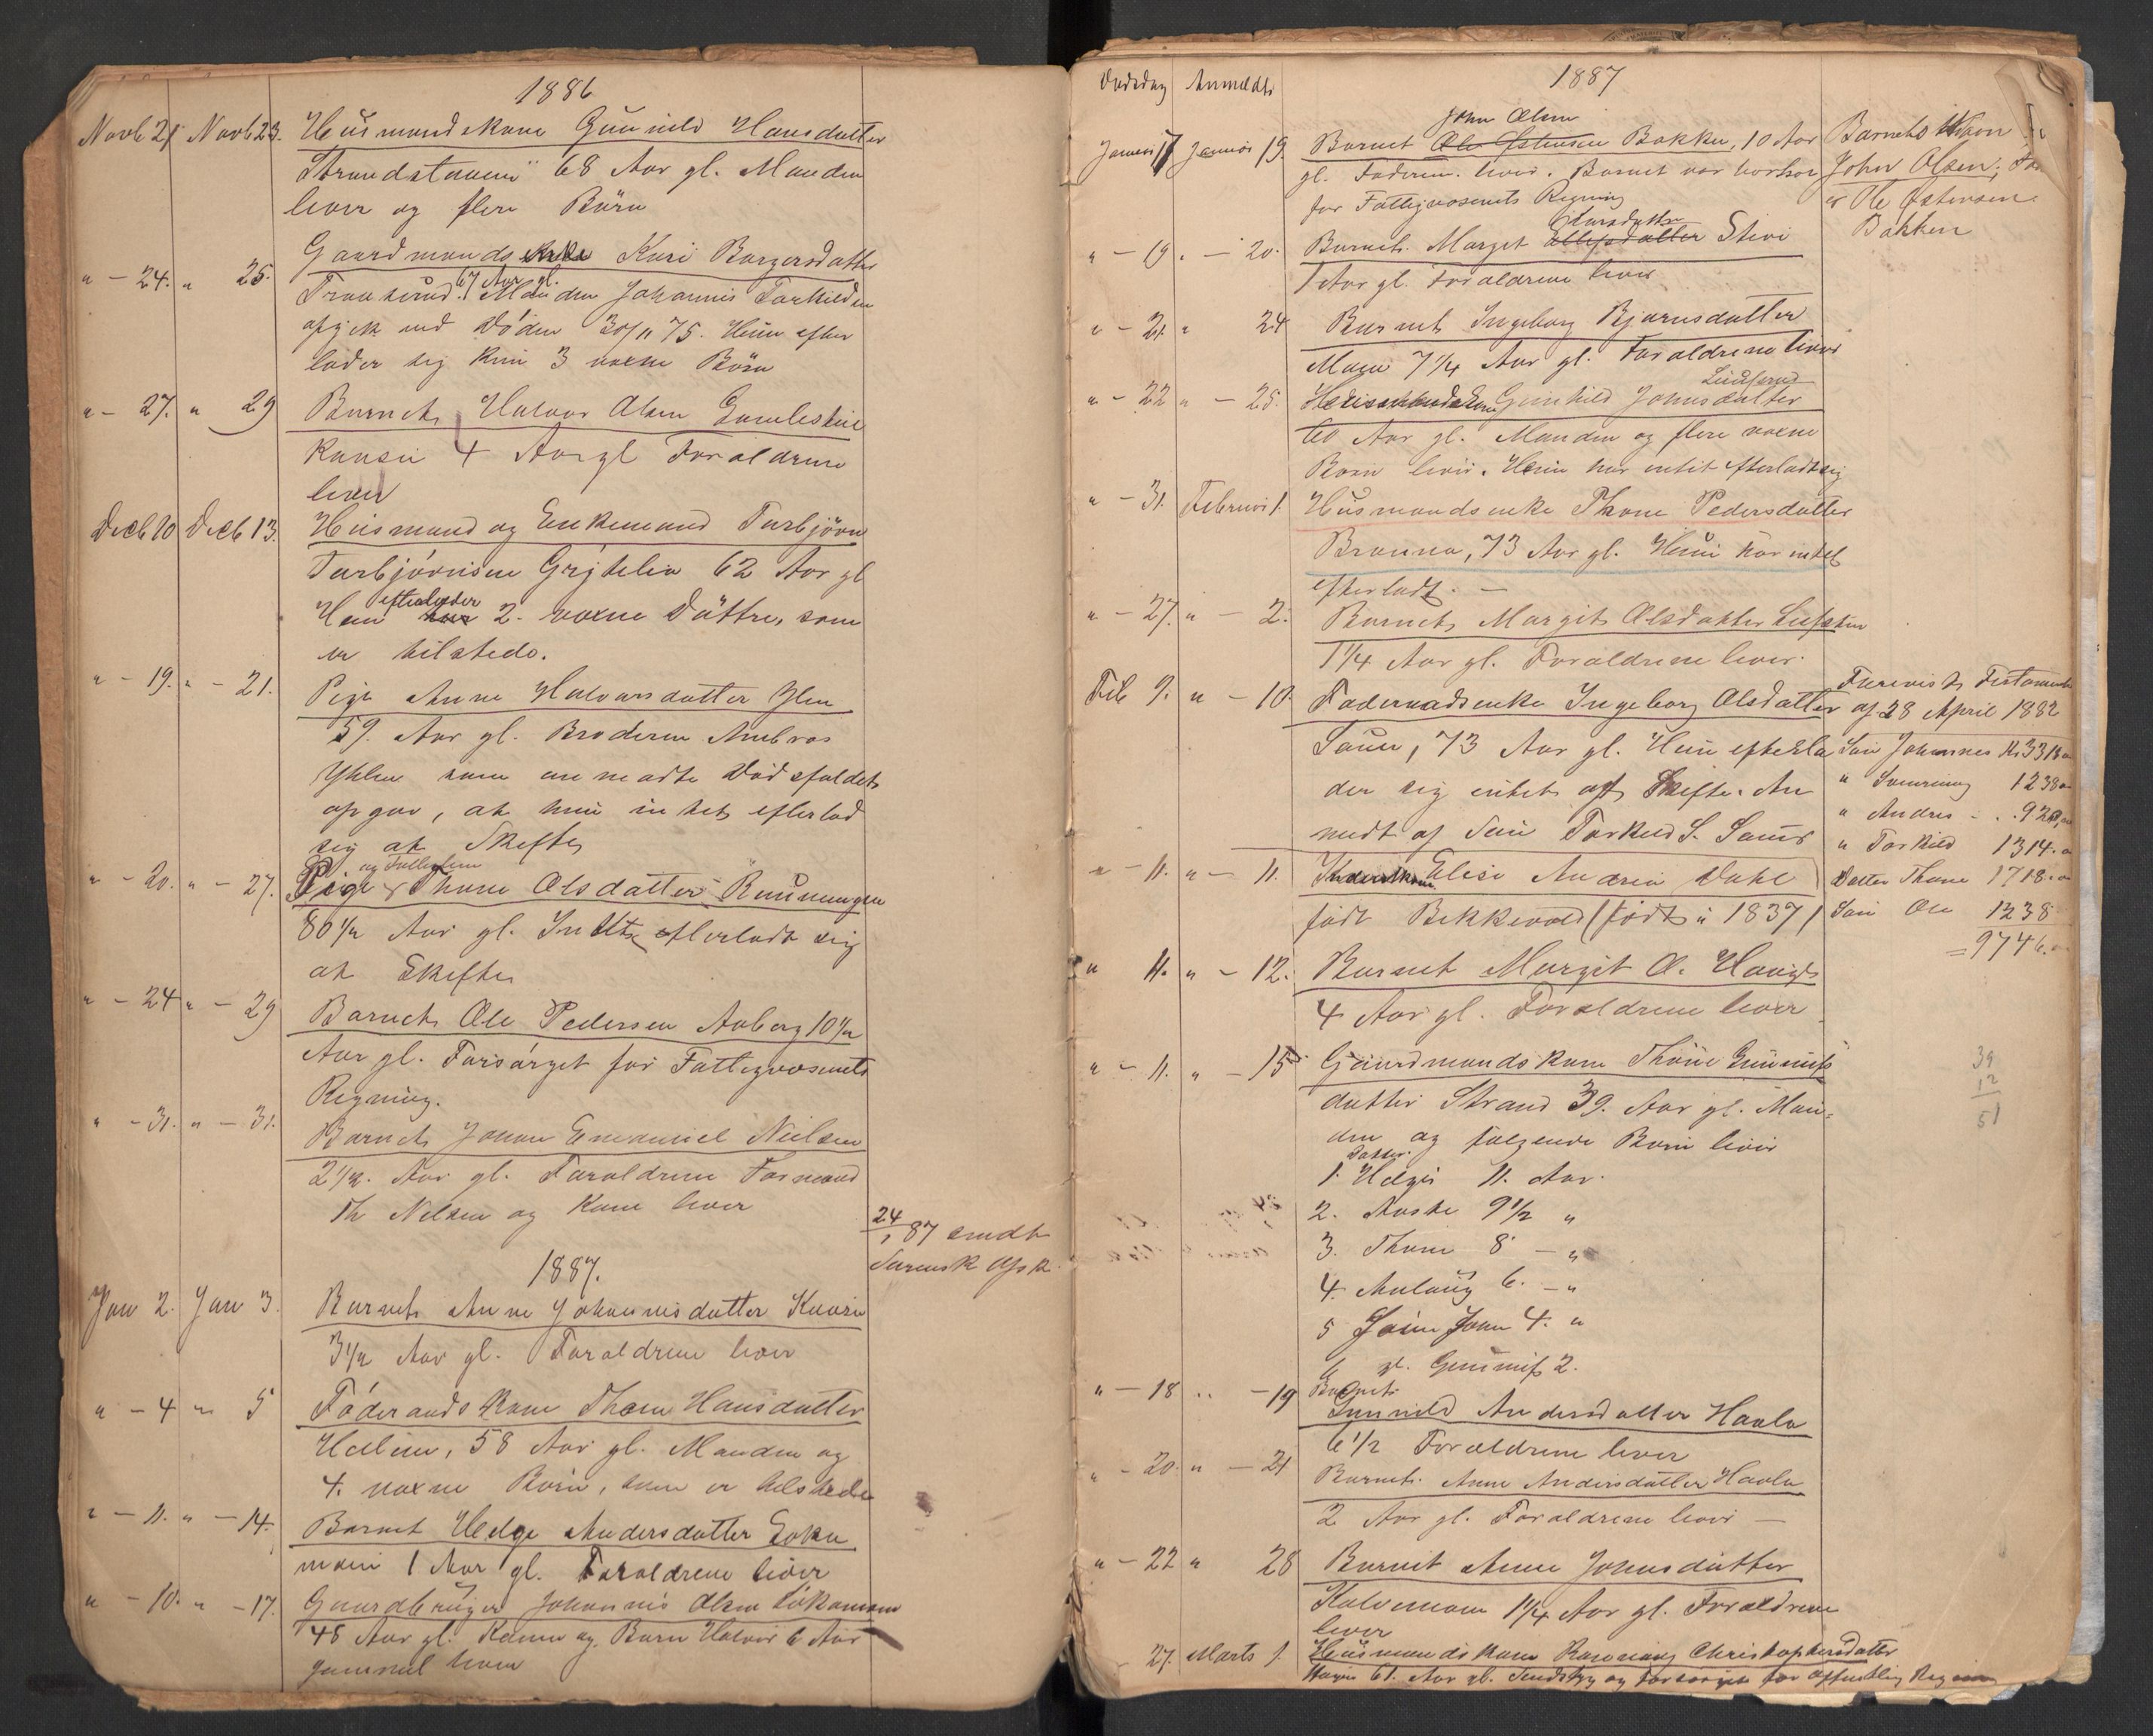 1886
Novb 21 Novb 23. Husmandskone Gunild Hansdatter
Strandstuen 68 Aar gl. Manden
lever og flere Börn
" - 24. " 25. Gaardmandsenke Kari Borgersdatter
67 Aar gl.
Manden Johannis Torkildsen
afgik ved Döden 30/11 75. Hun efter
lader sig kun 3 voxne Börn
" - 27. " 29 Barnet Halvor Olsen
4 Aar gl Foraldrene
lever
Decb 10 Decb 13. Husmand og Enkemand Torbjörn
Torbjörnsen Grytelia 62 Aar gl
efterlader
Han har 2. voxne Döttre, som
er tilstede.
" - 19. " - 21. Pige Anne Halvorsdatter Ylen
59. Aar gl. Broderen Ambros
Yhlen som anmeldte Dödsfaldet
opgav, at hun intet efterlod
sig at Skifte
" - 20. " - 27. Pige og Fattiglem Thone Olsdatter Runningen
80 1/2 Aar gl. Intet efterladt sig
at Skifte
" - 24 " - 29 Barnet Ole Pedersen Aaberg 10 1/2
Aar gl. Forsörget for Fattigvæsenets
Regning.
" - 31. " - 31. Barnet Johan Emanuel Nielsen
2 1/2. Aar gl. Foraldrene Formand
Th Nilsen og Kone lever
24/1 87 sendt
1887.
Jan 2. Jan 3. Barnet Anne Johannisdatter
3 1/2 Aar gl. Foraldrene lever
" - 4 " 5 Föderaadskone Thone Hansdatter
58 Aar gl. Manden og
4. voxne Börn, som er tilstede
" - 11. " - 14. Barnet Helge Andersdatter Loka
moen 1 Aar gl. Foraldrene lever
" - 10. " - 17. Gaardbruger Johannis Olsen Lökamoen
48 Aar gl. Konen og Barn Halvor 6 Aar
gammel lever
1887
Dödsdag Anmeldt
John Olsen
Januar 17 Januar 19. Barnet Ole Östensen Bakken, 10 Aar
gl. Faderen lever. Barnet var bortsat
for Fattigvæsenets Regning
Barnets Navn
John Olsen, Far
er Ole Østensen
Bakken
Larsdatter
" - 19. " - 20. Barnet Margit Ellefsdatter Stivi
1 Aar gl. Foraldrene lever
" - 21. " 24 Barnet Ingeborg Bjørnsdatter
Moen 7 1/4 Aar gl. Foraldrene lever
" - 22 " - 25. Husmandskone Gunhild Johnsdatter
60 Aar gl. Manden og flere voxne
Börn lever. Hun har intet efterladt sig
" - 31. Februar 1. Husmandsenke Thone Pedersdatter
73 Aar gl. Hun har intet
efterladt. -
" - 27. " - 2. Barnet Margit Olsdatter
1 1/4 Aar gl. Foraldrene lever.
Feb 9. " - 10. Föderaadsenke Ingeborg Olsdatter
Sauer, 73 Aar gl. Hun efterla
der sig intet at Skifte. An
meldt af Sön Torkild S. Sauer
Testament
af 28 April 1882
Sön Johannes Kr 3318
" 1238
" Andres - 920
" Torkild 1314.
Datter Thone 1718.
Sön Ole 1238
= 9746.
" - 11. " - 11. Elise Andrea Dahl
födt Bekkevold (födt i 1837)
" 11. " - 12. Barnet Margit O. Haugen
4 Aar gl. Foraldrene lever
" - 11. " - 15 Gaardmandskone Thone Gunnufs
datter Strand 39. Aar gl. Man-
den og fölgende Börn lever
Datter.
1. Helge 11. Aar.
2. Aaste 9 1/2 "
3. Thone 8 - "
4. Anlaug 6. - "
5 Sön John 4. "
6 Gunnuf 2.
39
12
51
" - 18 " - 19 Barnet
Gunild Andersdatter Haatvedt
6 1/2 Foraldrene lever
" - 20. " - 21 Barnet Anne Andersdatter
2 Aar gl. Foraldrene lever -
" - 22 " 28 Barnet Anne Johnsdatter
Kolvemoen 1 1/4 Aar gl. Foraldrene
lever
27. Marts 1. Husmandskone Christophersdatter
Hagen 61. Aar gl. Sindssyg og forsörget for offentlig Regning